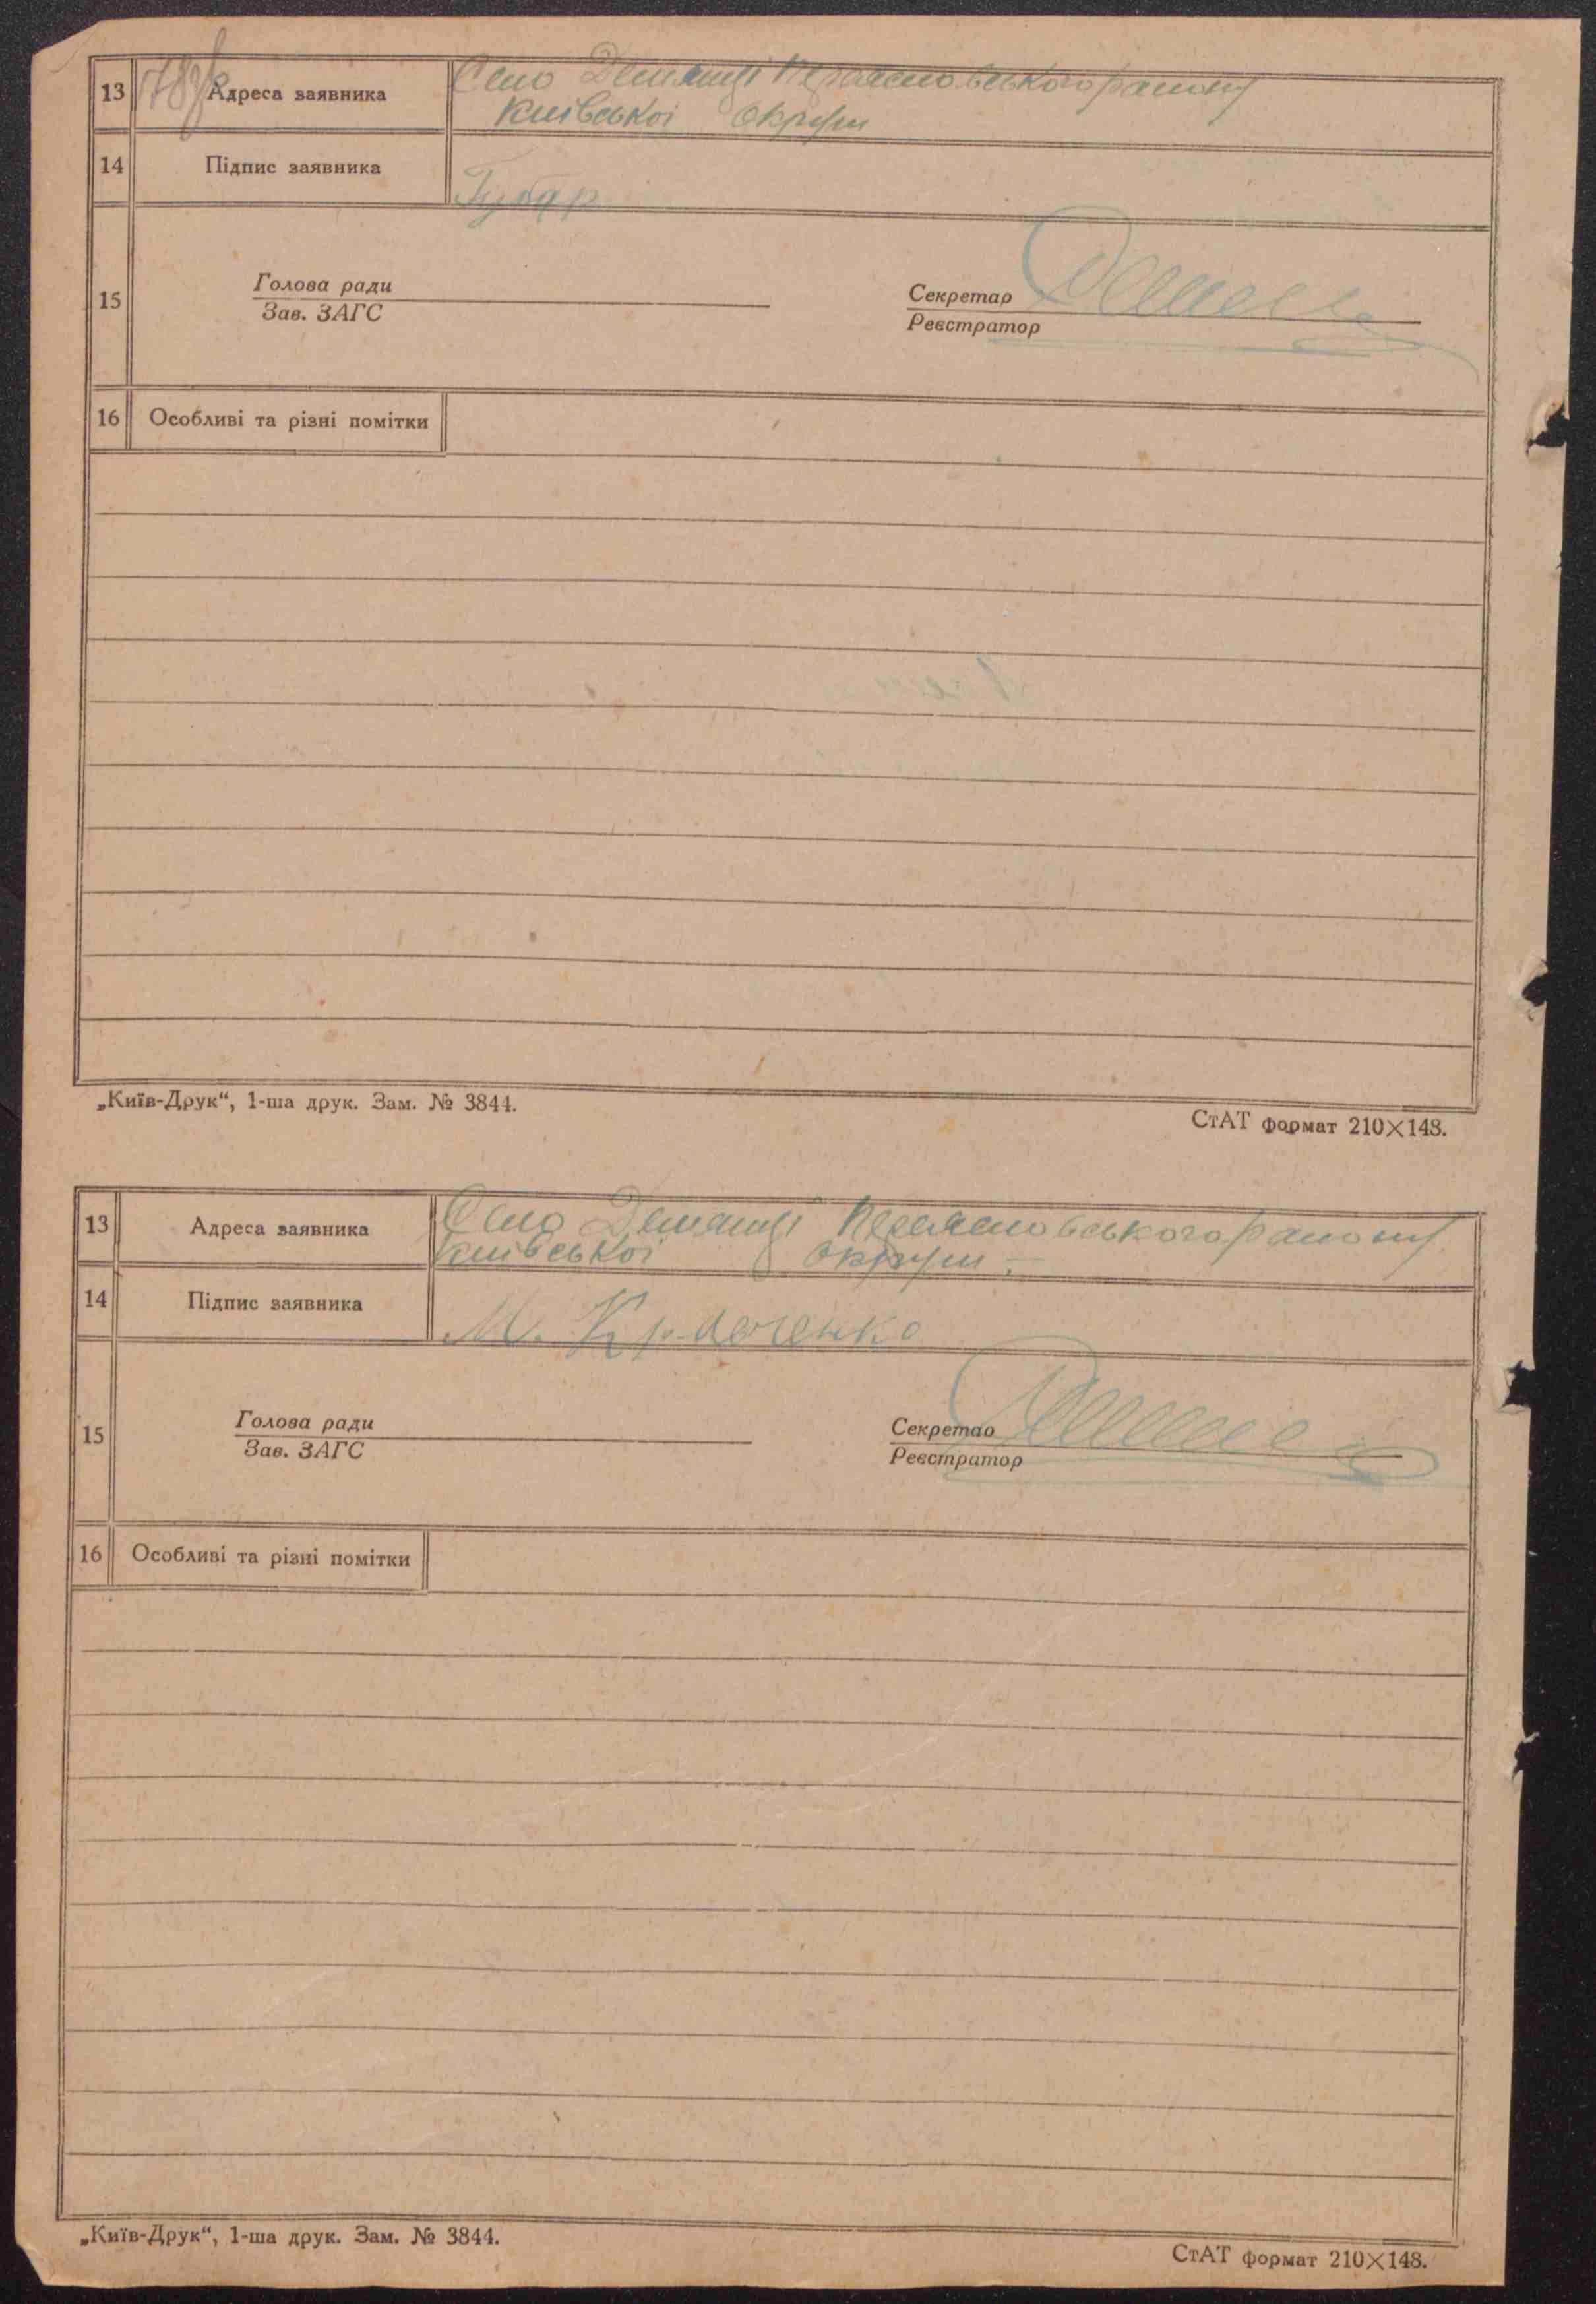 13 Адреса заявника Село Демянці Переясловського району
Київської округи
14 Підпис заявника Губар
15 Голова ради
Зав. ЗАГС
Секретар
Реєстратор
16 Особливі та різні помітки
„Київ-Друк“, 1-ша друк. Зам. № 3844.
СтАТ формат 210×148.
13 Адреса заявника Село Демянці Переясловського району
Київської округи.
14 Підпис заявника М. Кравченко
15 Голова ради
Зав. ЗАГС
Секретар
Реєстратор
16 Особливі та різні помітки
„Київ-Друк“, 1-ша друк. Зам. № 3844.
СтАТ формат 210×148.